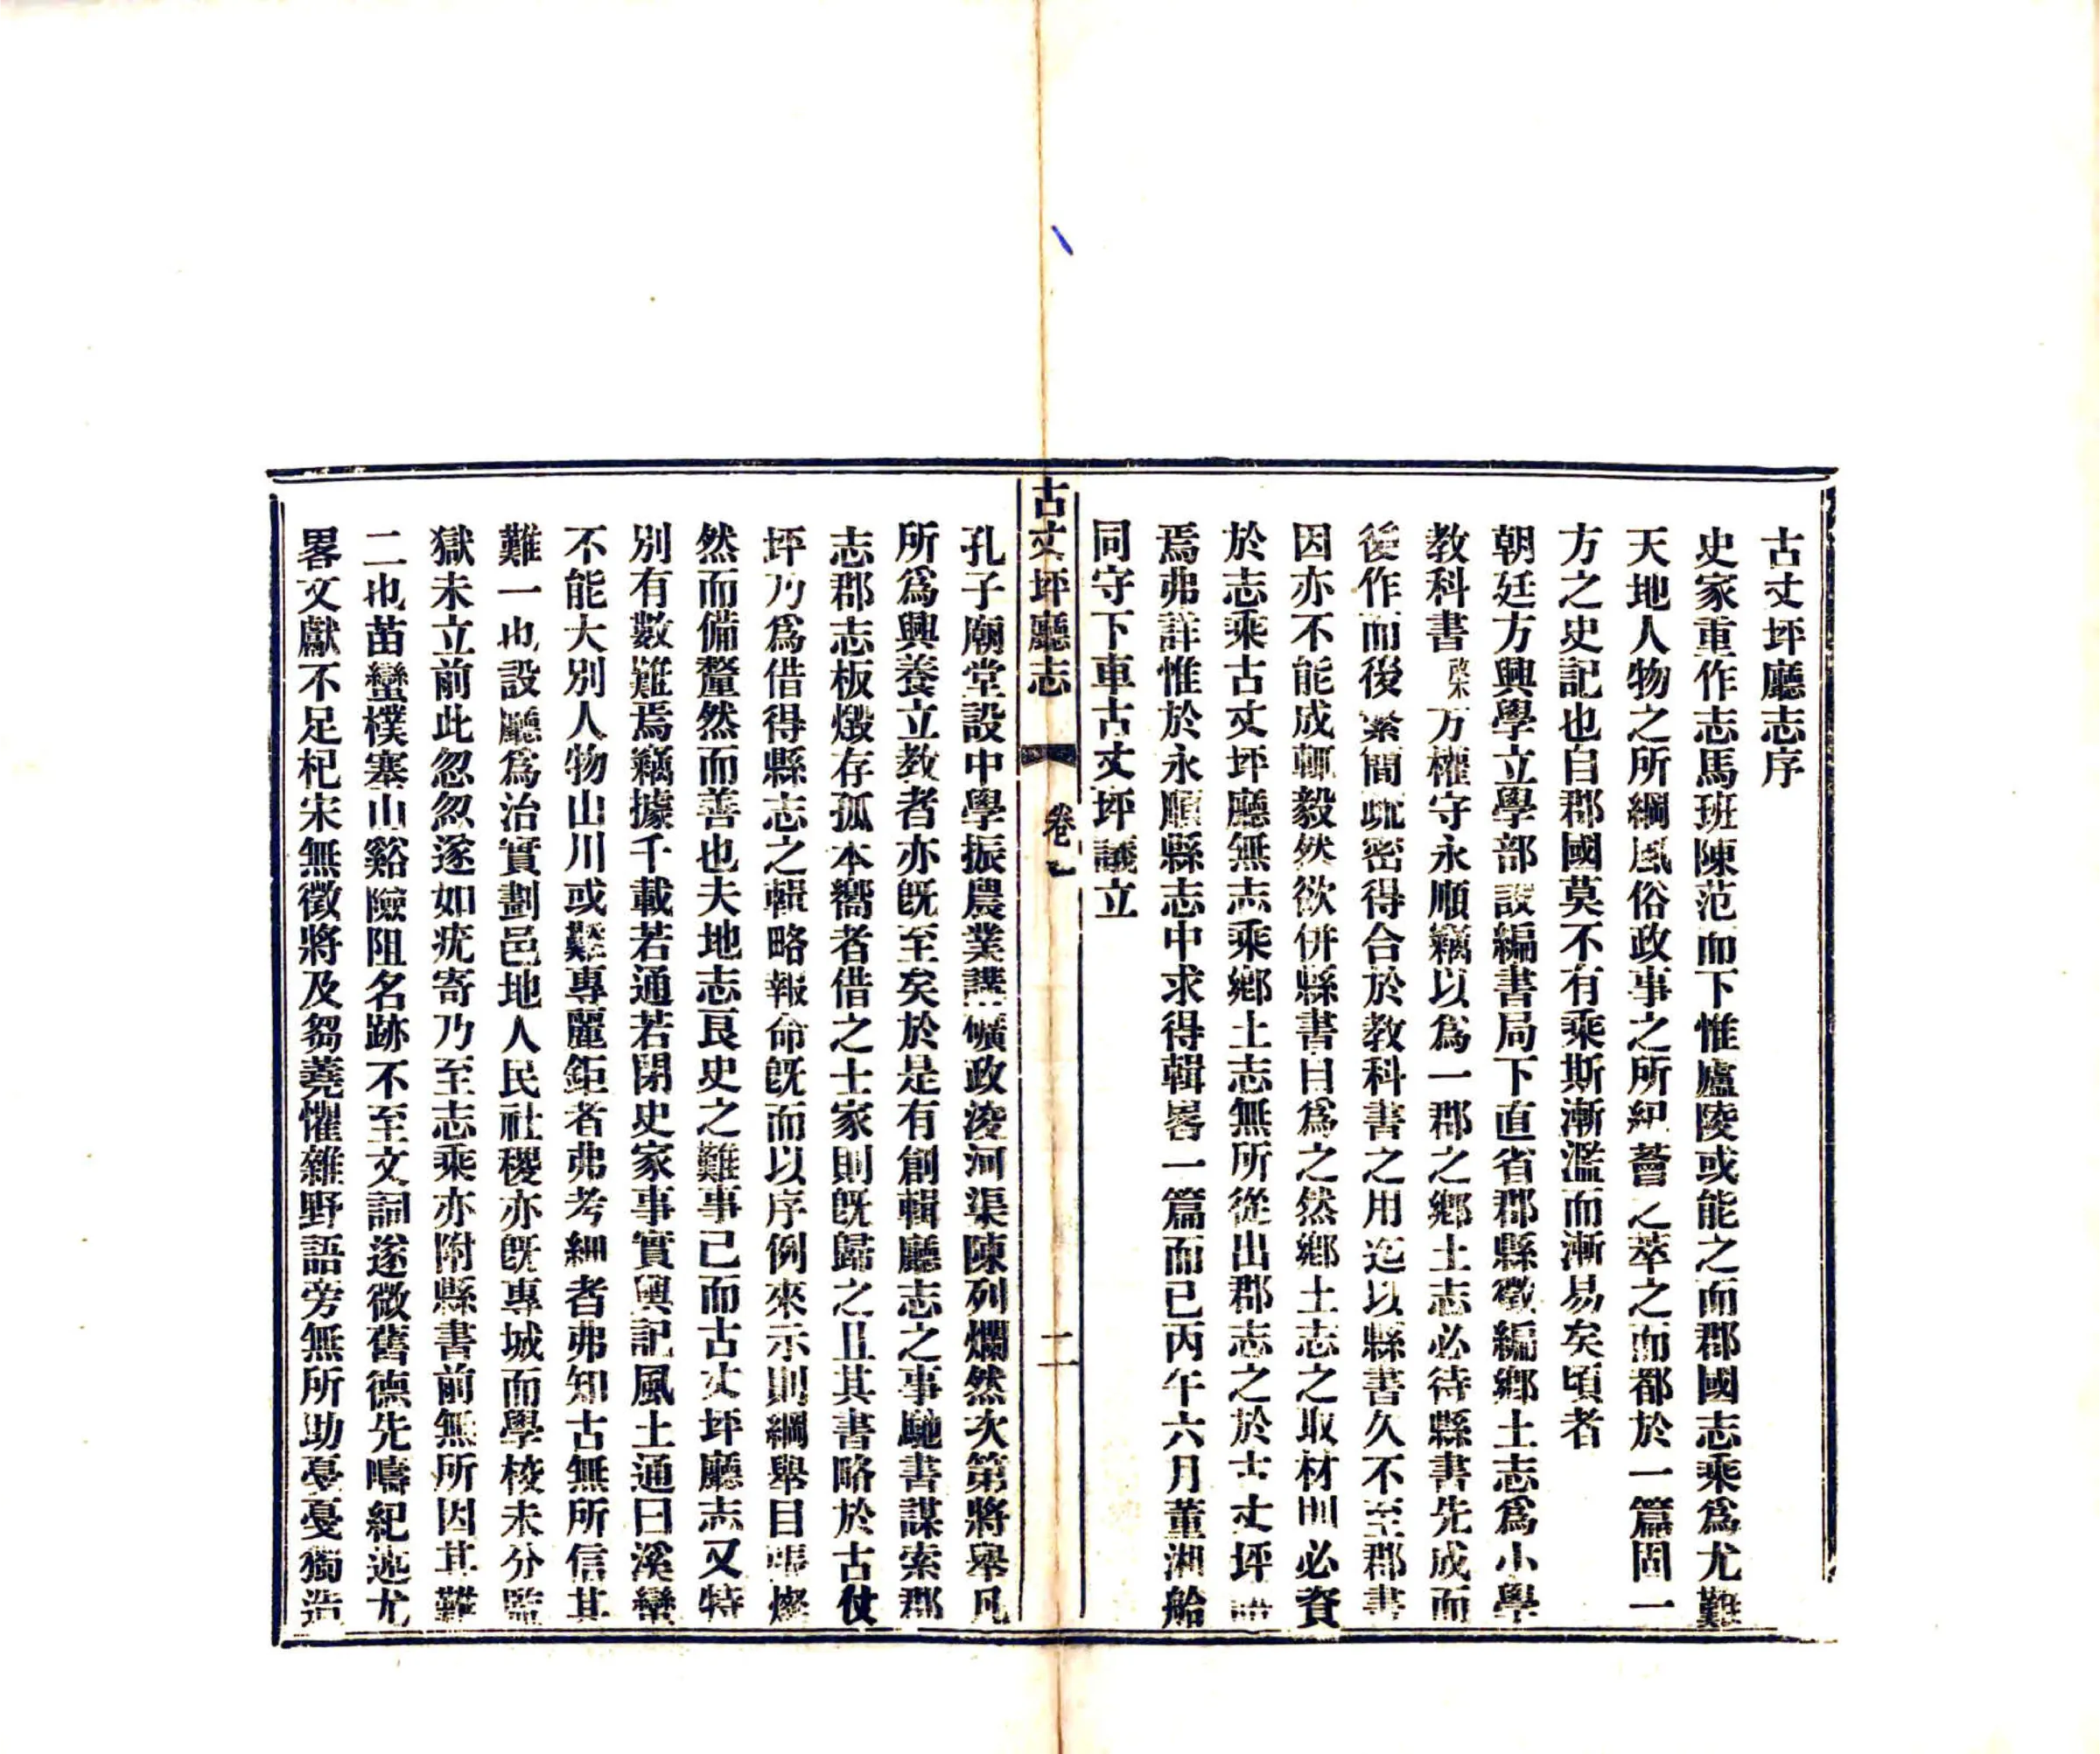 古丈坪廳志序
史家重作志馬班陳范而下惟廬陵或能之而郡國志乘爲尤難
天地人物之所綱風俗政事之所紀薈之萃之而都於一篇固一
方之史記也自郡國莫不有乘斯漸濫而漸易矣頃者
朝廷方興學立學部設編書局下直省郡縣徵編鄉土志爲小學
教科書改木方權守永順竊以爲一郡之鄉土志必待縣書先成而
後作而後繁簡疏密得合於教科書之用迄以縣書久不至郡書
因亦不能成輒毅然欲併縣書自爲之然鄉土志之取材則必資
於志乘古丈坪廳無志乘鄉土志無所從出郡志之於古丈坪
焉弗詳惟於永順縣志中求得輯畧一篇而已丙午六月董湘船
同守下車古丈坪議立
古丈坪廳志 卷一 二
孔子廟堂設中學振農業講礦政浚河渠陳列爛然次第將舉凡
所爲興養立教者亦既至矣於是有創輯廳志之事馳書謀索郡
志郡志板燬存孤本嚮者借之士家則既歸之且其書略於古仗
坪乃爲借得縣志之輯略報命既而以序例來示則綱舉目張燦
然而備釐然而善也夫地志良史之難事已而古丈坪廳志又特
別有數難焉竊據千載若通若閉史家事實輿記風土通曰溪蠻
不能大別人物山川或艱專麗鉅者弗考細者弗知古無所信其
難一也設廳爲治實劃邑地人民社稷亦既專城而學校未分監
獄未立前此忽忽遂如疣寄乃至志乘亦附縣書前無所因其難
二也苗蠻樸塞山谿險阻名跡不至文詞遂微舊德先疇紀述尤
畧文獻不足杞宋無徵將及芻蕘懼雜野語旁無所助戞戞獨造